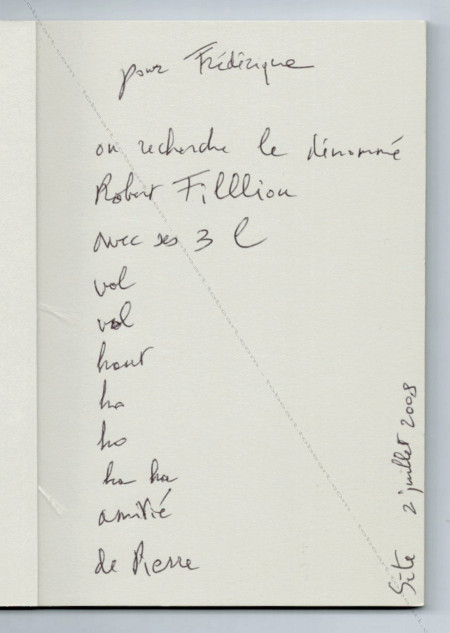 pour Frédérique
on recherche le dénommé
Robert Fillliou
avec ses 3 l
vol
vol
haut
ha
ho
ha ha
amitié
de Pierre
Sète 2 juillet 2008